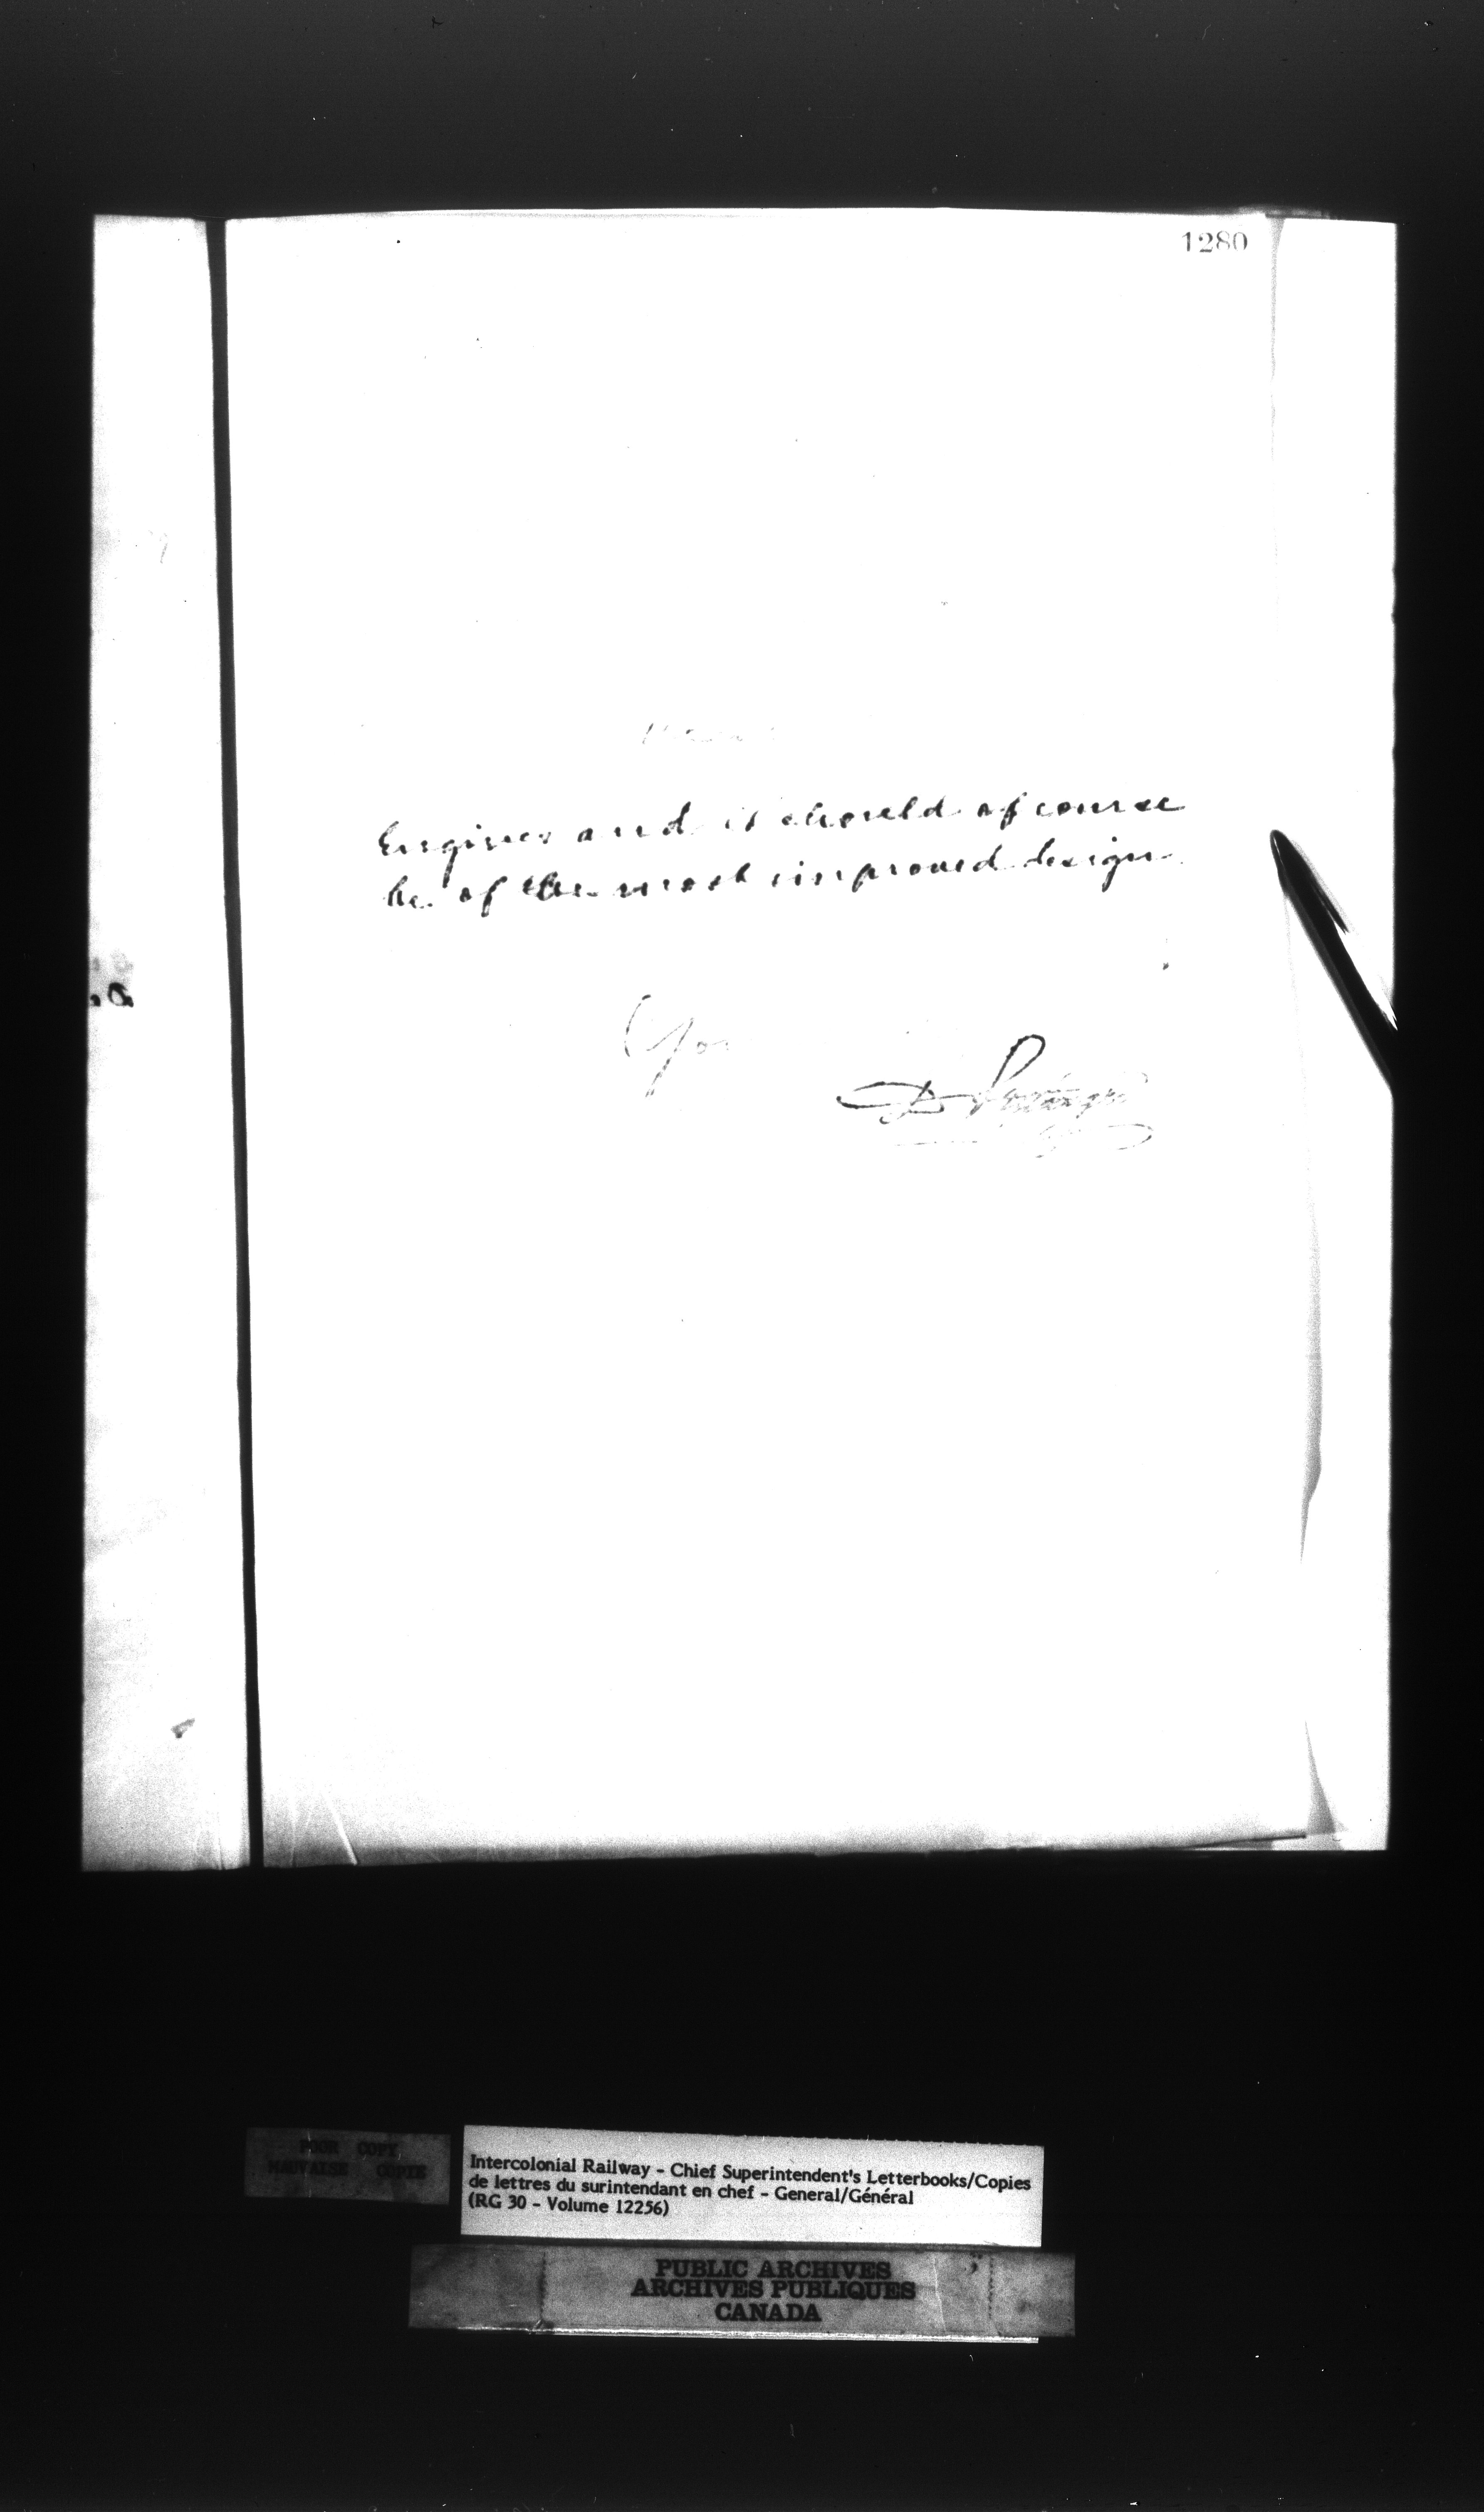 1280
Engines and it should of course
be of the most improved design
You
D Pottinger
POOR COPY
MAUVAISE COPIE
Intercolonial Railway - Chief Superintendent's Letterbooks/Copies
de lettres du surintendant en chef - General/Général
(RG 30 - Volume 12256)
PUBLIC ARCHIVES
ARCHIVES PUBLIQUES
CANADA